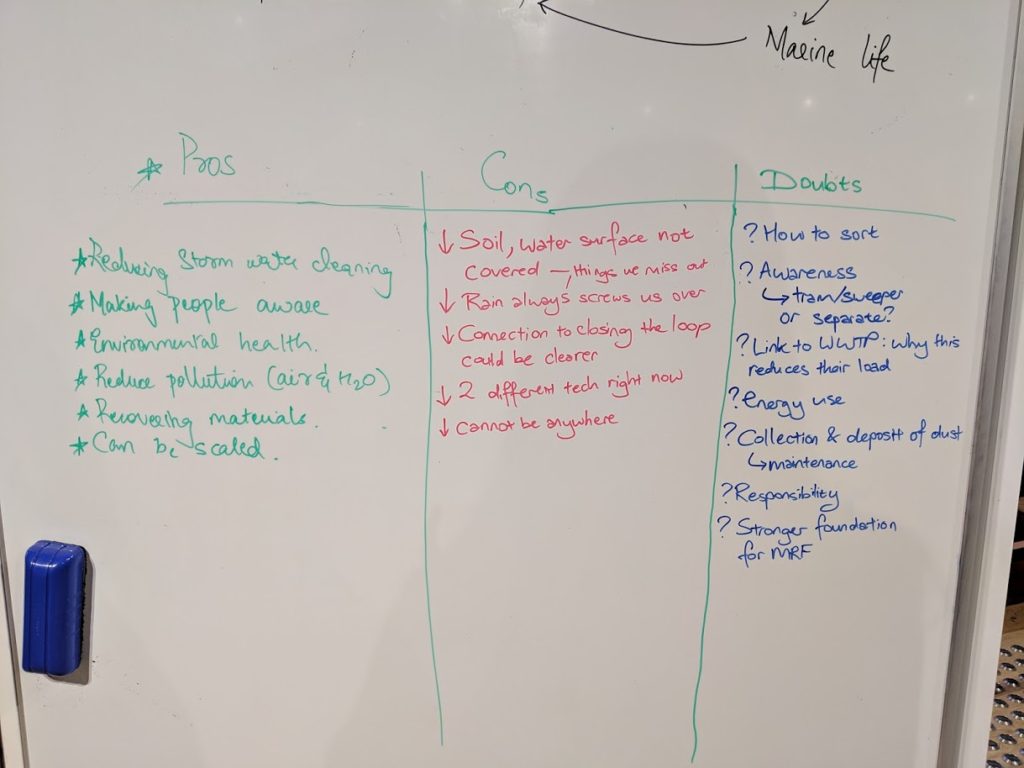 Marine life
☆ Pros
★ Reducing Storm water cleaning
★ Making people aware
★ Environmental health.
★ Reduce pollution (air & H2O)
★ Recovering materials.
★ Can be scaled.
Cons
↓ Soil, water surface not
covered → things we miss out
↓ Rain always screws us over
↓ Connection to closing the loop
could be clearer
↓ 2 different tech right now
↓ Cannot be anywhere
Doubts
? How to sort
? Awareness
↳ tram/sweeper
or separate?
? Link to WWTP: Why this
reduces their load
? Energy use
? Collection & deposit of dust
↳ maintenance
? Responsibility
? Stronger foundation
for MRF